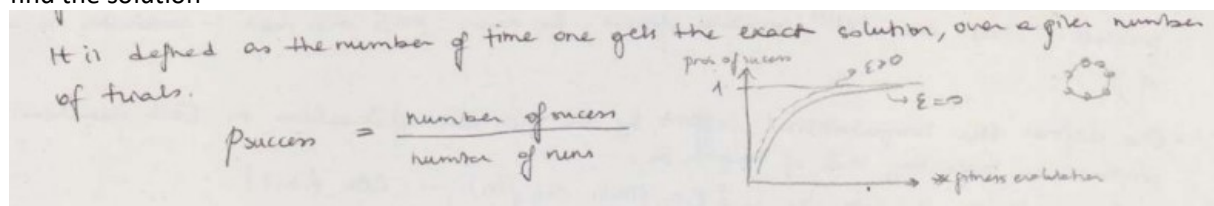 find the solution
It is defined as the number of time one gets the exact solution, over a given number
of trials.
Psuccess = number of success / number of runs
prob of success
1
ε>0
ε=0
# fitness evaluation